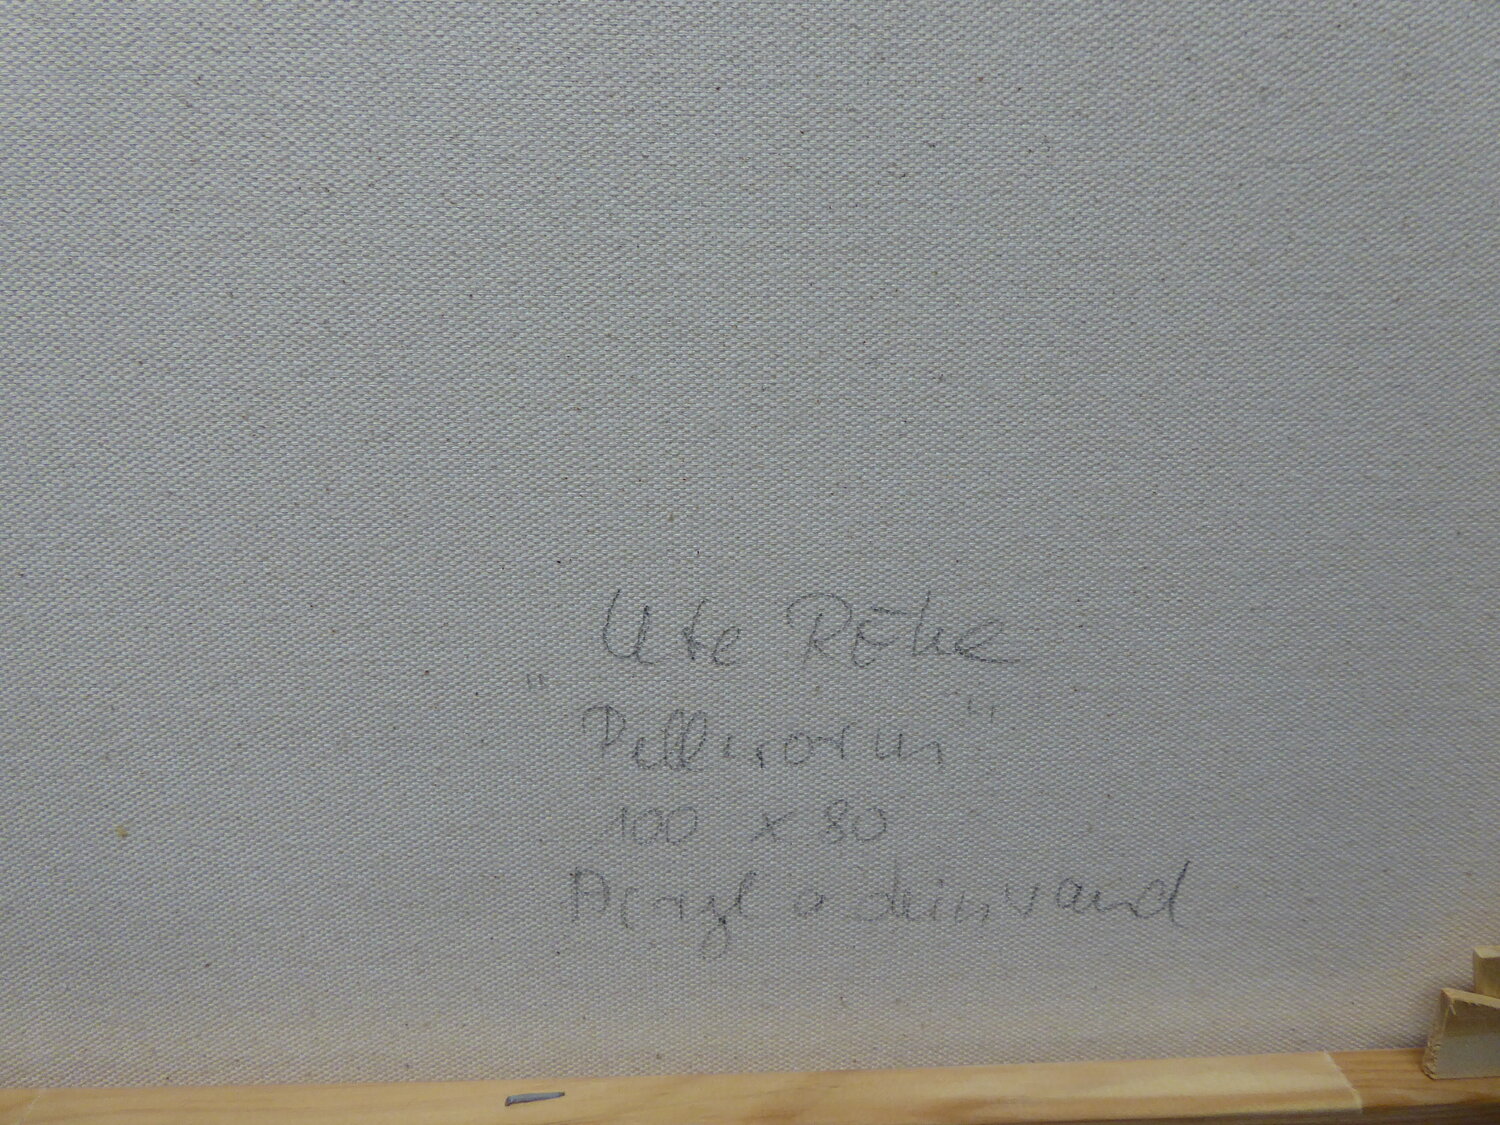 Ute Röhe
"Pellworm"
100 x 80
Acryl a Leinwand